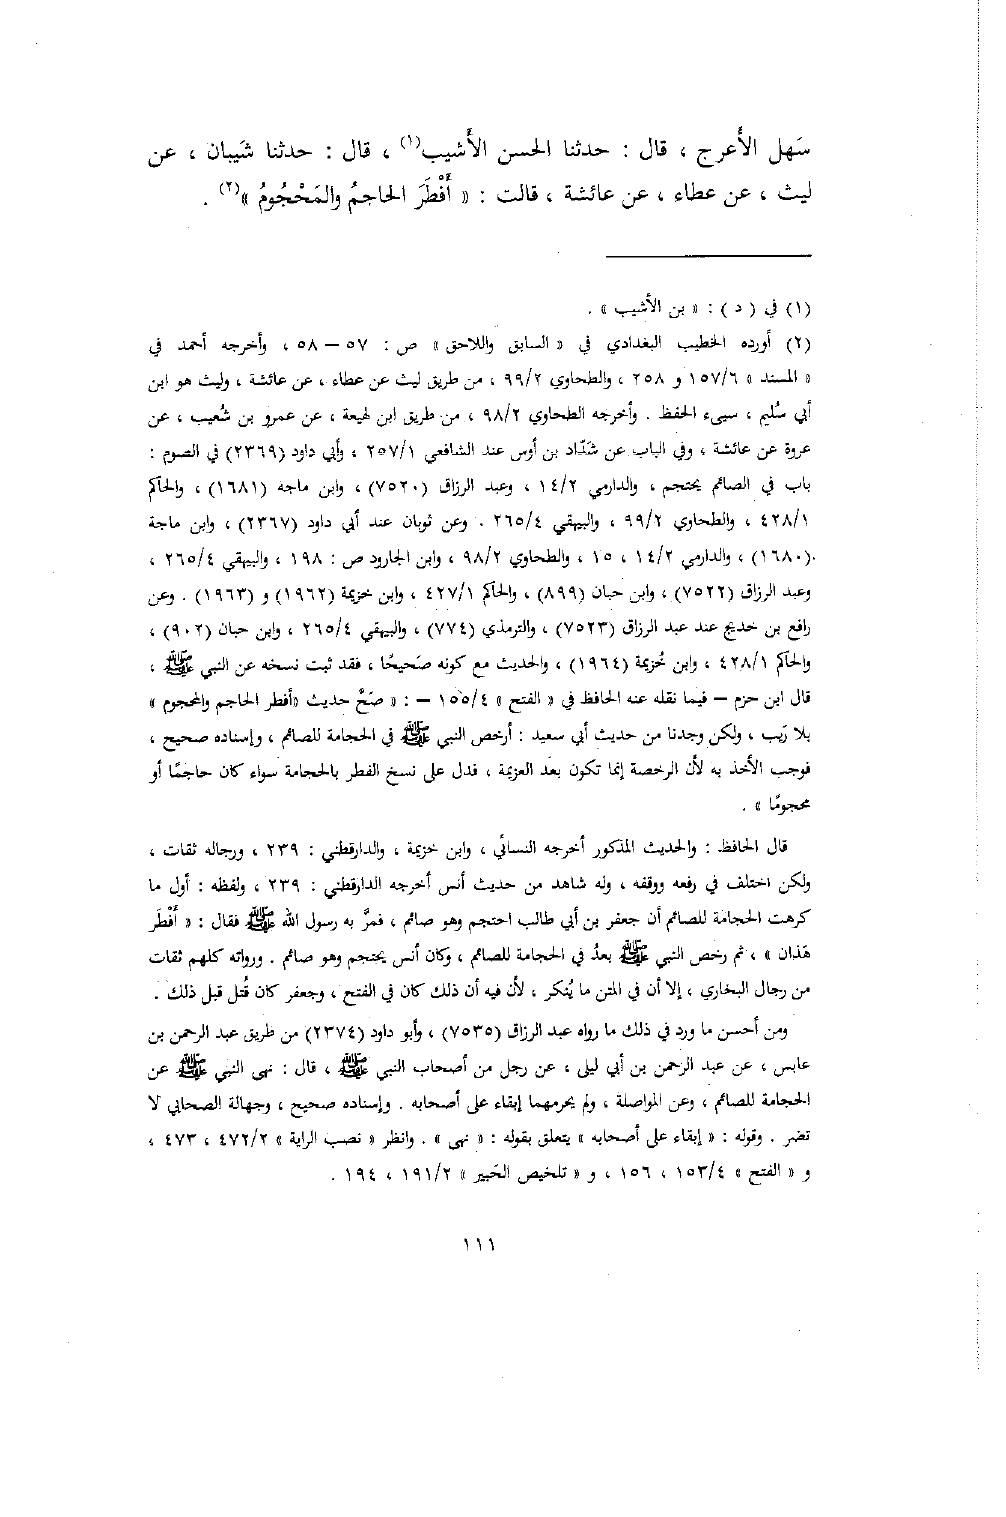 سَهل الأَعرج ، قال : حدثنا الحسن الأَشيب(١) ، قال : حدثنا شَيبان ، عن
ليث ، عن عطاء ، عن عائشة ، قالت : « أَفْطَرَ الحاجمُ والمَحْجُومُ »(٢) .
(١) في ( د ) : « بن الأشيب » .
(٢) أورده الخطيب البغدادي في « السابق واللاحق » ص : ٥٧ – ٥٨ ، وأخرجه أحمد في
« المسند » ١٥٧/٦ و ٢٥٨ ، والطحاوي ٩٩/٢ ، من طريق ليث عن عطاء ، عن عائشة ، وليث هو ابن
أبي سُليم ، سيىء الحفظ . وأخرجه الطحاوي ٩٨/٢ ، من طريق ابن لهيعة ، عن عمرو بن شُعيب ، عن
عروة عن عائشة ، وفي الباب عن شَدّاد بن أوس عند الشافعي ٢٥٧/١ ، وأبي داود (٢٣٦٩) في الصوم :
باب في الصائم يحتجم ، والدارمي ١٤/٢ ، وعبد الرزاق (٧٥٢٠) ، وابن ماجه (١٦٨١) ، والحاكم
٤٢٨/١ ، والطحاوي ٩٩/٢ ، والبيهقي ٢٦٥/٤ . وعن ثوبان عند أبي داود (٢٣٦٧) ، وابن ماجة
(١٦٨٠) ، والدارمي ١٤/٢ ، ١٥ ، والطحاوي ٩٨/٢ ، وابن الجارود ص : ١٩٨ ، والبيهقي ٢٦٥/٤ ،
وعبد الرزاق (٧٥٢٢) ، وابن حبان (٨٩٩) ، والحاكم ٤٢٧/١ ، وابن خزيمة (١٩٦٢) و (١٩٦٣) . وعن
رافع بن خديج عند عبد الرزاق (٧٥٢٣) ، والترمذي (٧٧٤) ، والبيهقي ٢٦٥/٤ ، وابن حبان (٩٠٢) ،
والحاكم ٤٢٨/١ ، وابن خُزيمة (١٩٦٤) ، والحديث مع كونه صَحيحًا ، فقد ثبت نسخه عن النبي ﷺ ،
قال ابن حزم – فيما نقله عنه الحافظ في « الفتح » ١٥٥/٤ – : « صَحَّ حديث «أفطر الحاجم والمحجوم »
بلا رَيب ، ولكن وجدنا من حديث أبي سعيد : أرخص النبي ﷺ في الحجامة للصائم ، وإسناده صحيح ،
فوجب الأخذ به لأن الرخصة إنما تكون بعد العزيمة ، فدل على نسخ الفطر بالحجامة سواء كان حاجمًا أو
محجومًا » .
قال الحافظ : والحديث المذكور أخرجه النسائي ، وابن خزيمة ، والدارقطني : ٢٣٩ ، ورجاله ثقات ،
ولكن اختلف في رفعه ووقفه ، وله شاهد من حديث أنس أخرجه الدارقطني : ٢٣٩ ، ولفظه : أول ما
كرهت الحجامة للصائم أن جعفر بن أبي طالب احتجم وهو صائم ، فمرَّ به رسول الله ﷺ فقال : « أَفْطَر
هَذان » ، ثم رخص النبي ﷺ بعدُ في الحجامة للصائم ، وكان أنس يحتجم وهو صائم . ورواته كلهم ثقات
من رجال البخاري ، إلا أن في المتن ما يُنكر ، لأن فيه أن ذلك كان في الفتح ، وجعفر كان قُتل قبل ذلك .
ومن أحسن ما ورد في ذلك ما رواه عبد الرزاق (٧٥٣٥) ، وأبو داود (٢٣٧٤) من طريق عبد الرحمن بن
عابس ، عن عبد الرحمن بن أبي ليلى ، عن رجل من أصحاب النبي ﷺ ، قال : نهى النبي ﷺ عن
الحجامة للصائم ، وعن المواصلة ، ولم يحرمهما إبقاء على أصحابه . وإسناده صحيح ، وجهالة الصحابي لا
تضر . وقوله : « إبقاء على أصحابه » يتعلق بقوله : « نهى » . وانظر « نصب الراية » ٤٧٢/٢ ، ٤٧٣ ،
و « الفتح » ١٥٣/٤ ، ١٥٦ ، و « تلخيص الحَبير » ١٩١/٢ ، ١٩٤ .
١١١